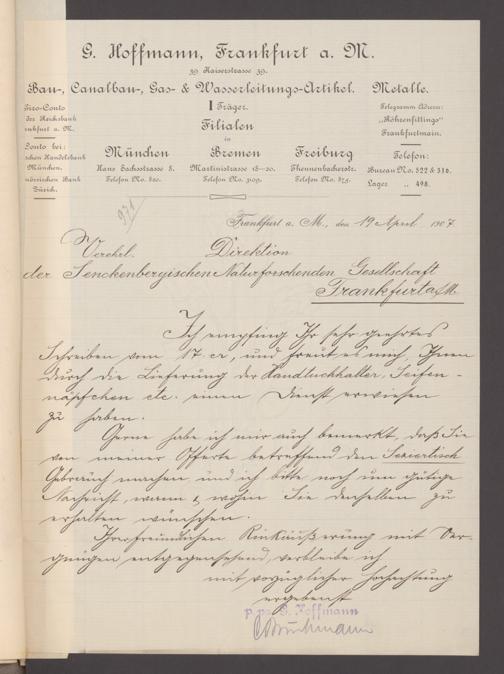 G. Hoffmann, Frankfurt a. M.
39 Kaiserstrasse 39.
Bau-, Canalbau-, Gas- & Wasserleitungs-Artikel. Metalle.
I Träger.
Giro-Conto
der Reichsbank
Frankfurt a. M.
Conto bei:
schen Handelsbank
München,
Bank
Zürich.
Filialen
in
München Bremen Freiburg
Hans Sachsstrasse 8. Martinistrasse 18-20. Thennenbacherstr.
Telefon No. 820. Telefon No. 909. Telefon No. 875.
Telegramm Adress:
„Röhrenfittings"
Frankfurtmain.
Telefon:
Bureau No. 522 & 318.
Lager „ 498.
Frankfurt a. M., den 19 April 1907.
Verehrl. Direktion
der Senckenbergischen Naturforschenden Gesellschaft
Frankfurt a/M.
Ich empfing Ihr sehr geehrtes
Schreiben vom 17. cr, und freut es mich, Ihnen
durch die Lieferung der Handtuchhalter, Seifen-
näpfchen etc. einen Dienst erwiesen
zu haben.
Gerne habe ich mir auch bemerkt, daß Sie
von meiner Offerte betreffend den Seziertisch
Gebrauch machen und ich bitte noch um gütige
Nachricht, wann & wohin Sie denselben zu
erhalten wünschen.
Ihrer freundlichen Rückäußerung mit Ver-
gnügen entgegensehend, verbleibe ich
mit vorzüglicher Hochachtung
ergebenst
p. pa. G. Hoffmann